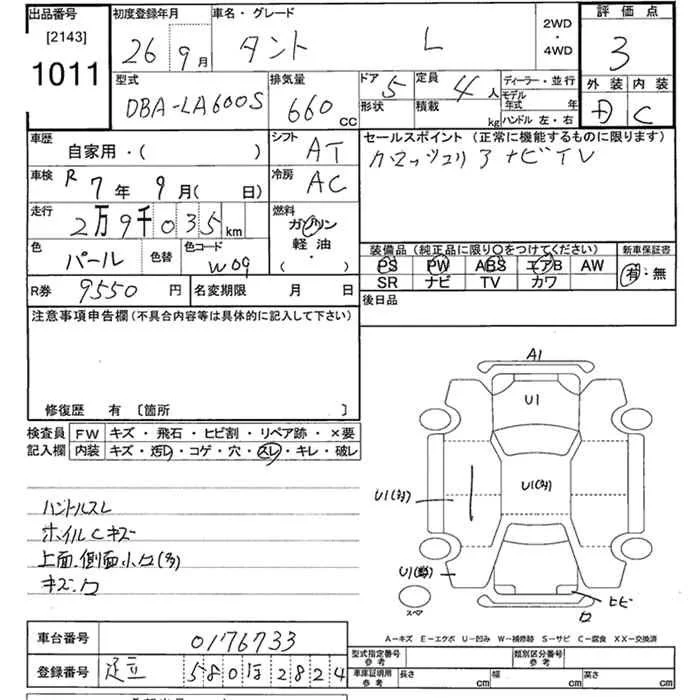 出品番号 初度登録年月 車名・グレード 2WD・4WD 評価点
[2143]
1011 26年 9月 タント L 3
型式 排気量 ドア 5 定員 4人 ディーラー・並行 外装 内装
DBA-LA600S 660cc 形状 積載 kg モデル年式 年 C
ハンドル 左・右
車歴 自家用・( ) シフト AT セールスポイント (正常に機能するものに限ります)
車検 R7年 9月( 日) 冷房 AC ナビTV
走行 2万9千035km 燃料 ガソリン・軽油・( )
色 パール 色替 色コード W09
装備品 (純正品に限り○をつけてください) 新車保証書
PS PW ABS エアB AW 有・無
SR ナビ TV カワ
R券 9550円 名変期限 月 日 後日品
注意事項申告欄 (不具合内容等は具体的に記入して下さい)
修復歴 有 [箇所 ]
検査員 FW キズ・飛石・ヒビ割・リペア跡・×要
記入欄 内装 キズ・汚れ・コゲ・穴・スレ・キレ・破レ
ハンドルスレ
ホイルCキズ
上面、側面小凹(多)
キズ、凹
A1
U1
U1(多)
U1(多)
ヒビ
凹
スペア
A-キズ E-エクボ U-凹み W-補修跡 S-サビ C-腐食 XX-交換済
車台番号 0176733
登録番号 足立 580 ほ 2824
型式指定番号 参考 類別区分番号 参考
車庫証明用 参考 長さ cm 幅 cm 高さ cm